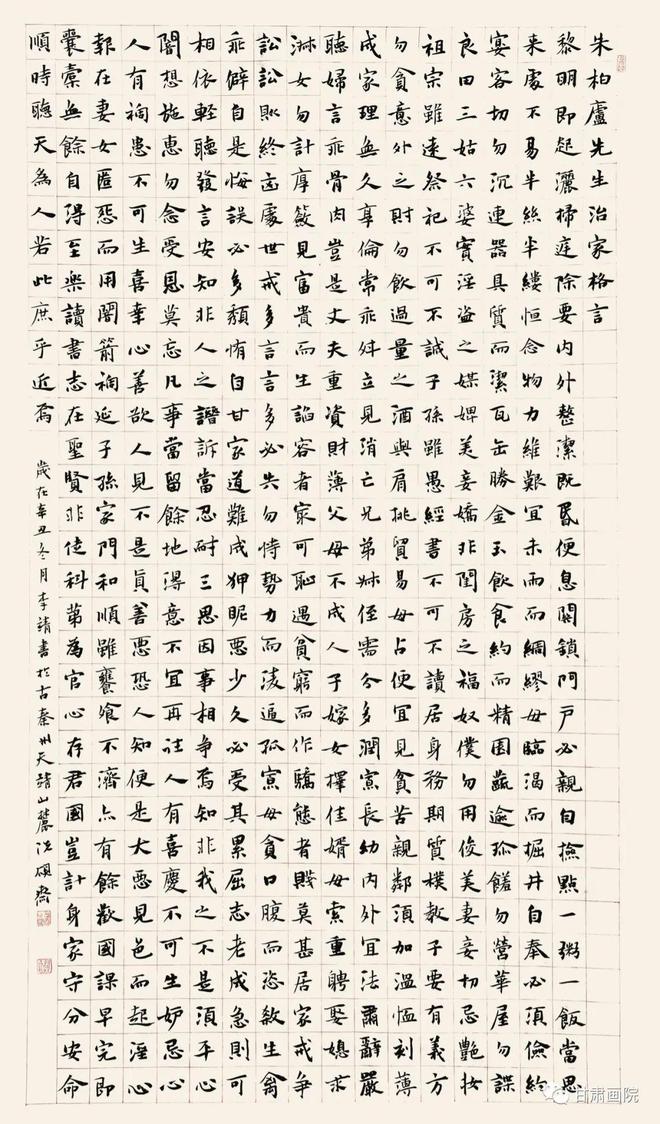 朱柏廬先生治家格言
黎明即起灑掃庭除要内外整潔既昬便息關鎖門戸必親自撿點一粥一飯當思
来處不易半絲半縷恒念物力維艱宜未雨而綢繆毋臨渴而掘井自奉必須儉約
宴客切勿沉連器具質而潔瓦缶勝金玉飲食約而精園蔬逾珍饈勿營華屋勿謀
良田三姑六婆實淫盗之媒婢美妾嬌非閨房之福奴僕勿用俊美妻妾切忌艷妝
祖宗雖遠祭祀不可不誠子孫雖愚經書不可不讀居身務期質樸教子要有義方
勿貪意外之財勿飲過量之酒與肩挑貿易毋占便宜見貧苦親鄰須加温恤刻薄
成家理無久享倫常乖舛立見消亡兄弟叔侄需分多潤寡長幼内外宜法肅辭嚴
聽婦言乖骨肉豈是丈夫重資財薄父母不成人子嫁女擇佳婿毋索重聘娶媳求
淑女勿計厚奩見富貴而生諂容者最可恥遇貧窮而作驕態者賤莫甚居家戒争
訟訟則終凶處世戒多言言多必失勿恃勢力而凌逼孤寡毋貪口腹而恣殺生禽
乖僻自是悔誤必多頽惰自甘家道難成狎昵惡少久必受其累屈志老成急則可
相依輕聽發言安知非人之譖訴當忍耐三思因事相争焉知非我之不是須平心
闇想施惠勿念受恩莫忘凡事當留餘地得意不宜再往人有喜慶不可生妒忌心
人有禍患不可生喜幸心善欲人見不是真善惡恐人知便是大惡見色而起淫心
報在妻女匿怨而用闇箭禍延子孫家門和順雖饔飧不濟亦有餘歡國課早完即
囊橐無餘自得至樂讀書志在聖賢非徒科第為官心存君國豈計身家守分安命
順時聽天為人若此庶乎近焉
歲在辛丑冬月李靖書於古秦州天靖山麓沈硯齋
甘肃画院